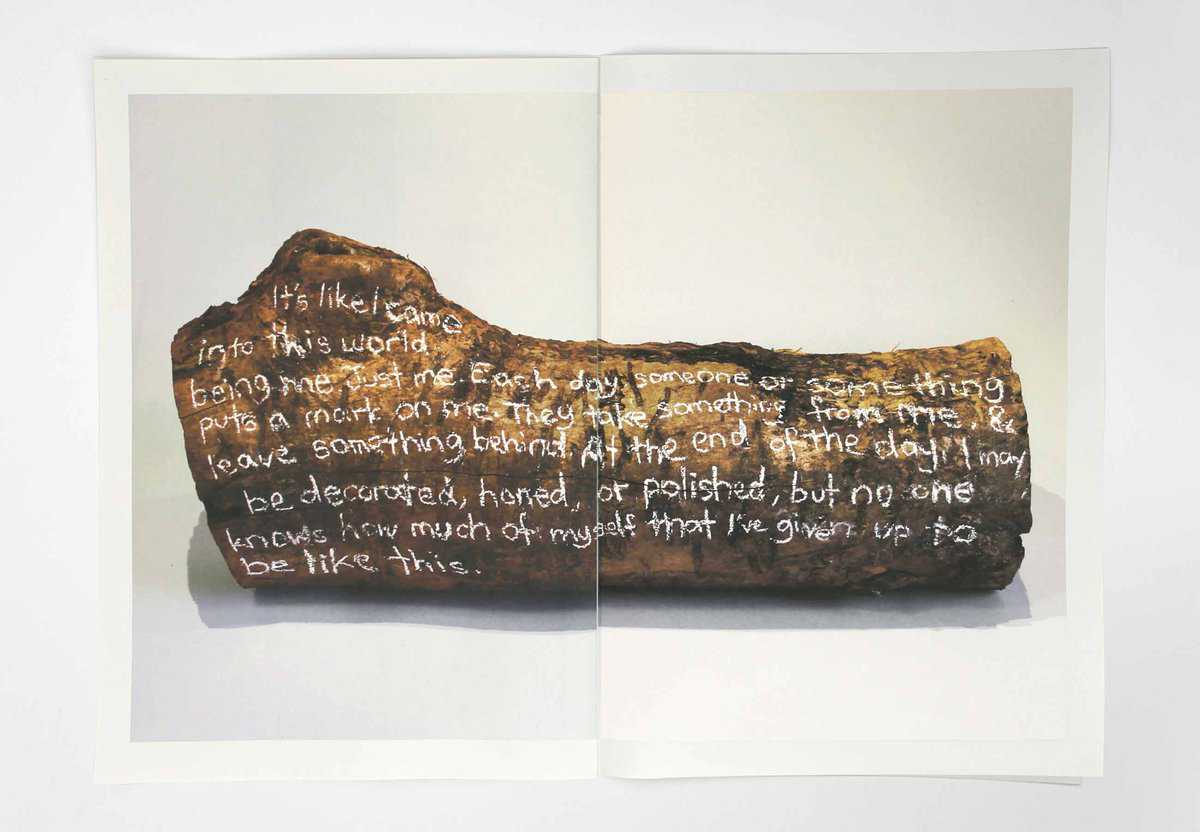 It's like I came
into this world.
being me. Just me. Each day someone or something
puts a mark on me. They take something from me, &
leave something behind. At the end of the day, I may
be decorated, honed, or polished, but no one
knows how much of myself that I've given up to
be like this.